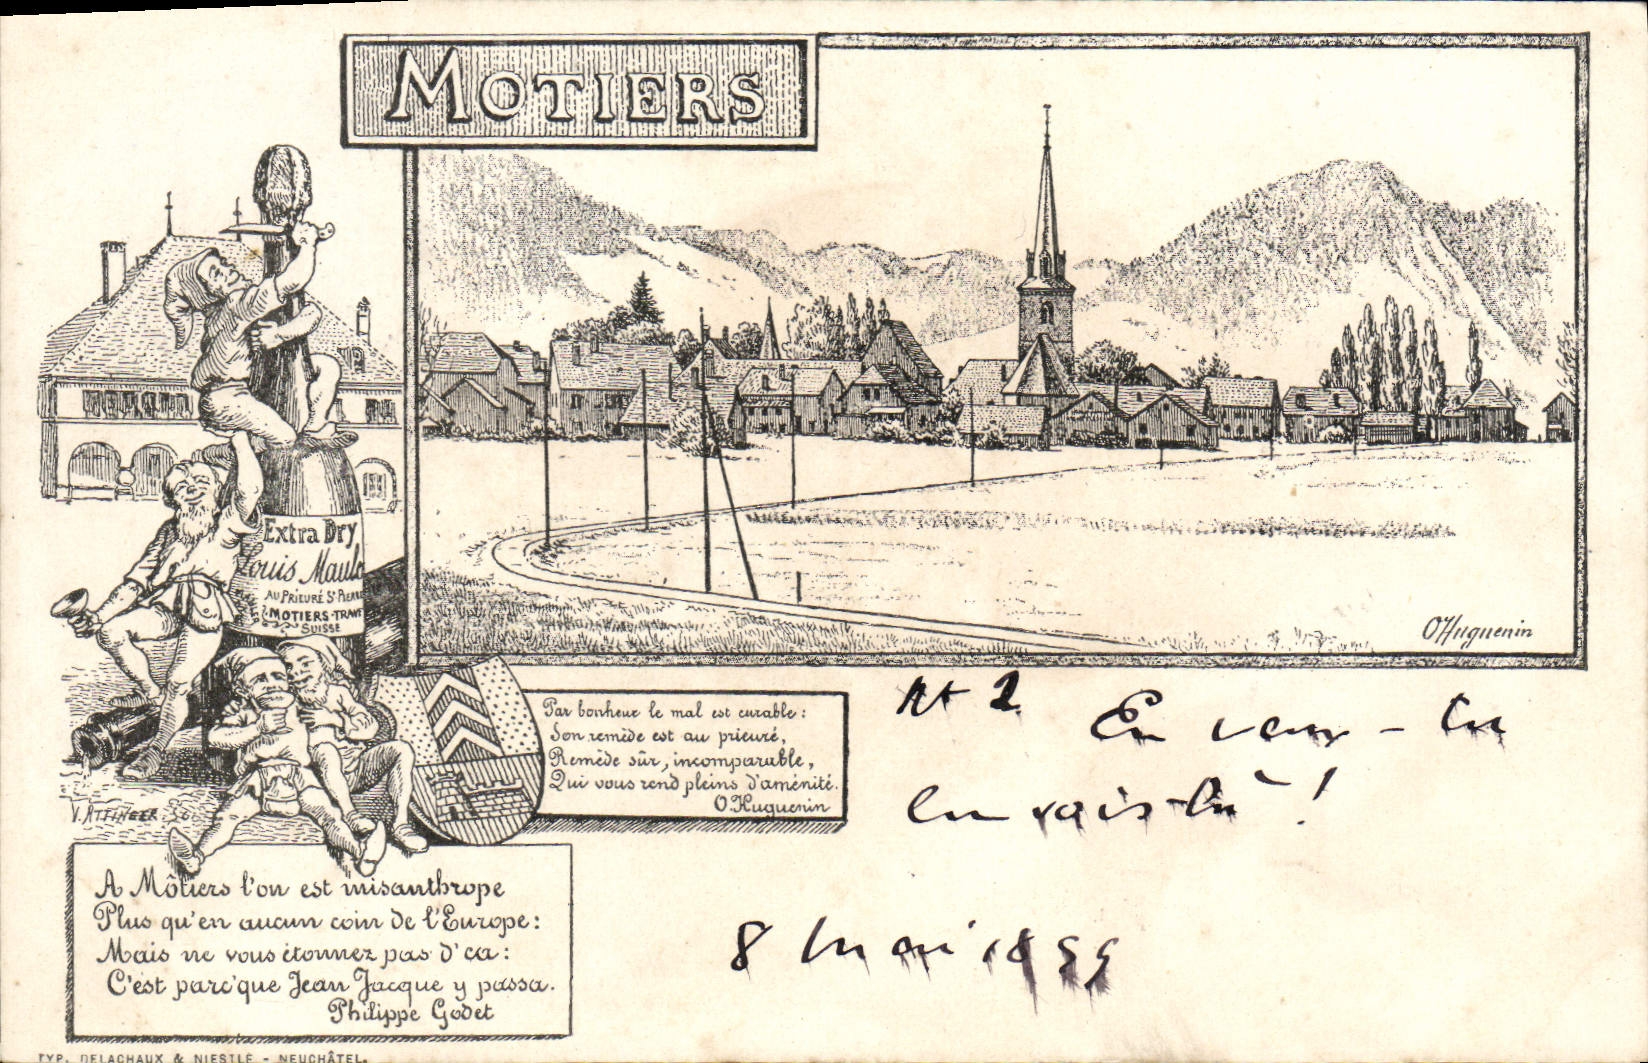 MOTIERS
Extra Dry
Louis Maule
AU PRIEURÉ St PIERRE
MOTIERS-TRAV
SUISSE
O Huguenin
Par bonheur le mal est curable:
Son remède est au prieuré,
Remède sûr, incomparable,
Qui vous rend pleins d'aménité.
O. Huguenin
No 2 En veux-tu
en vois-tu!
V. ATTINGER. SC.
A Môtiers l'on est misanthrope
Plus qu'en aucun coin de l'Europe:
Mais ne vous étonnez pas d'ca:
C'est parc'que Jean Jacque y passa.
Philippe Godet
8 mai 1899
TYP. DELACHAUX & NIESTLÉ - NEUCHÂTEL.